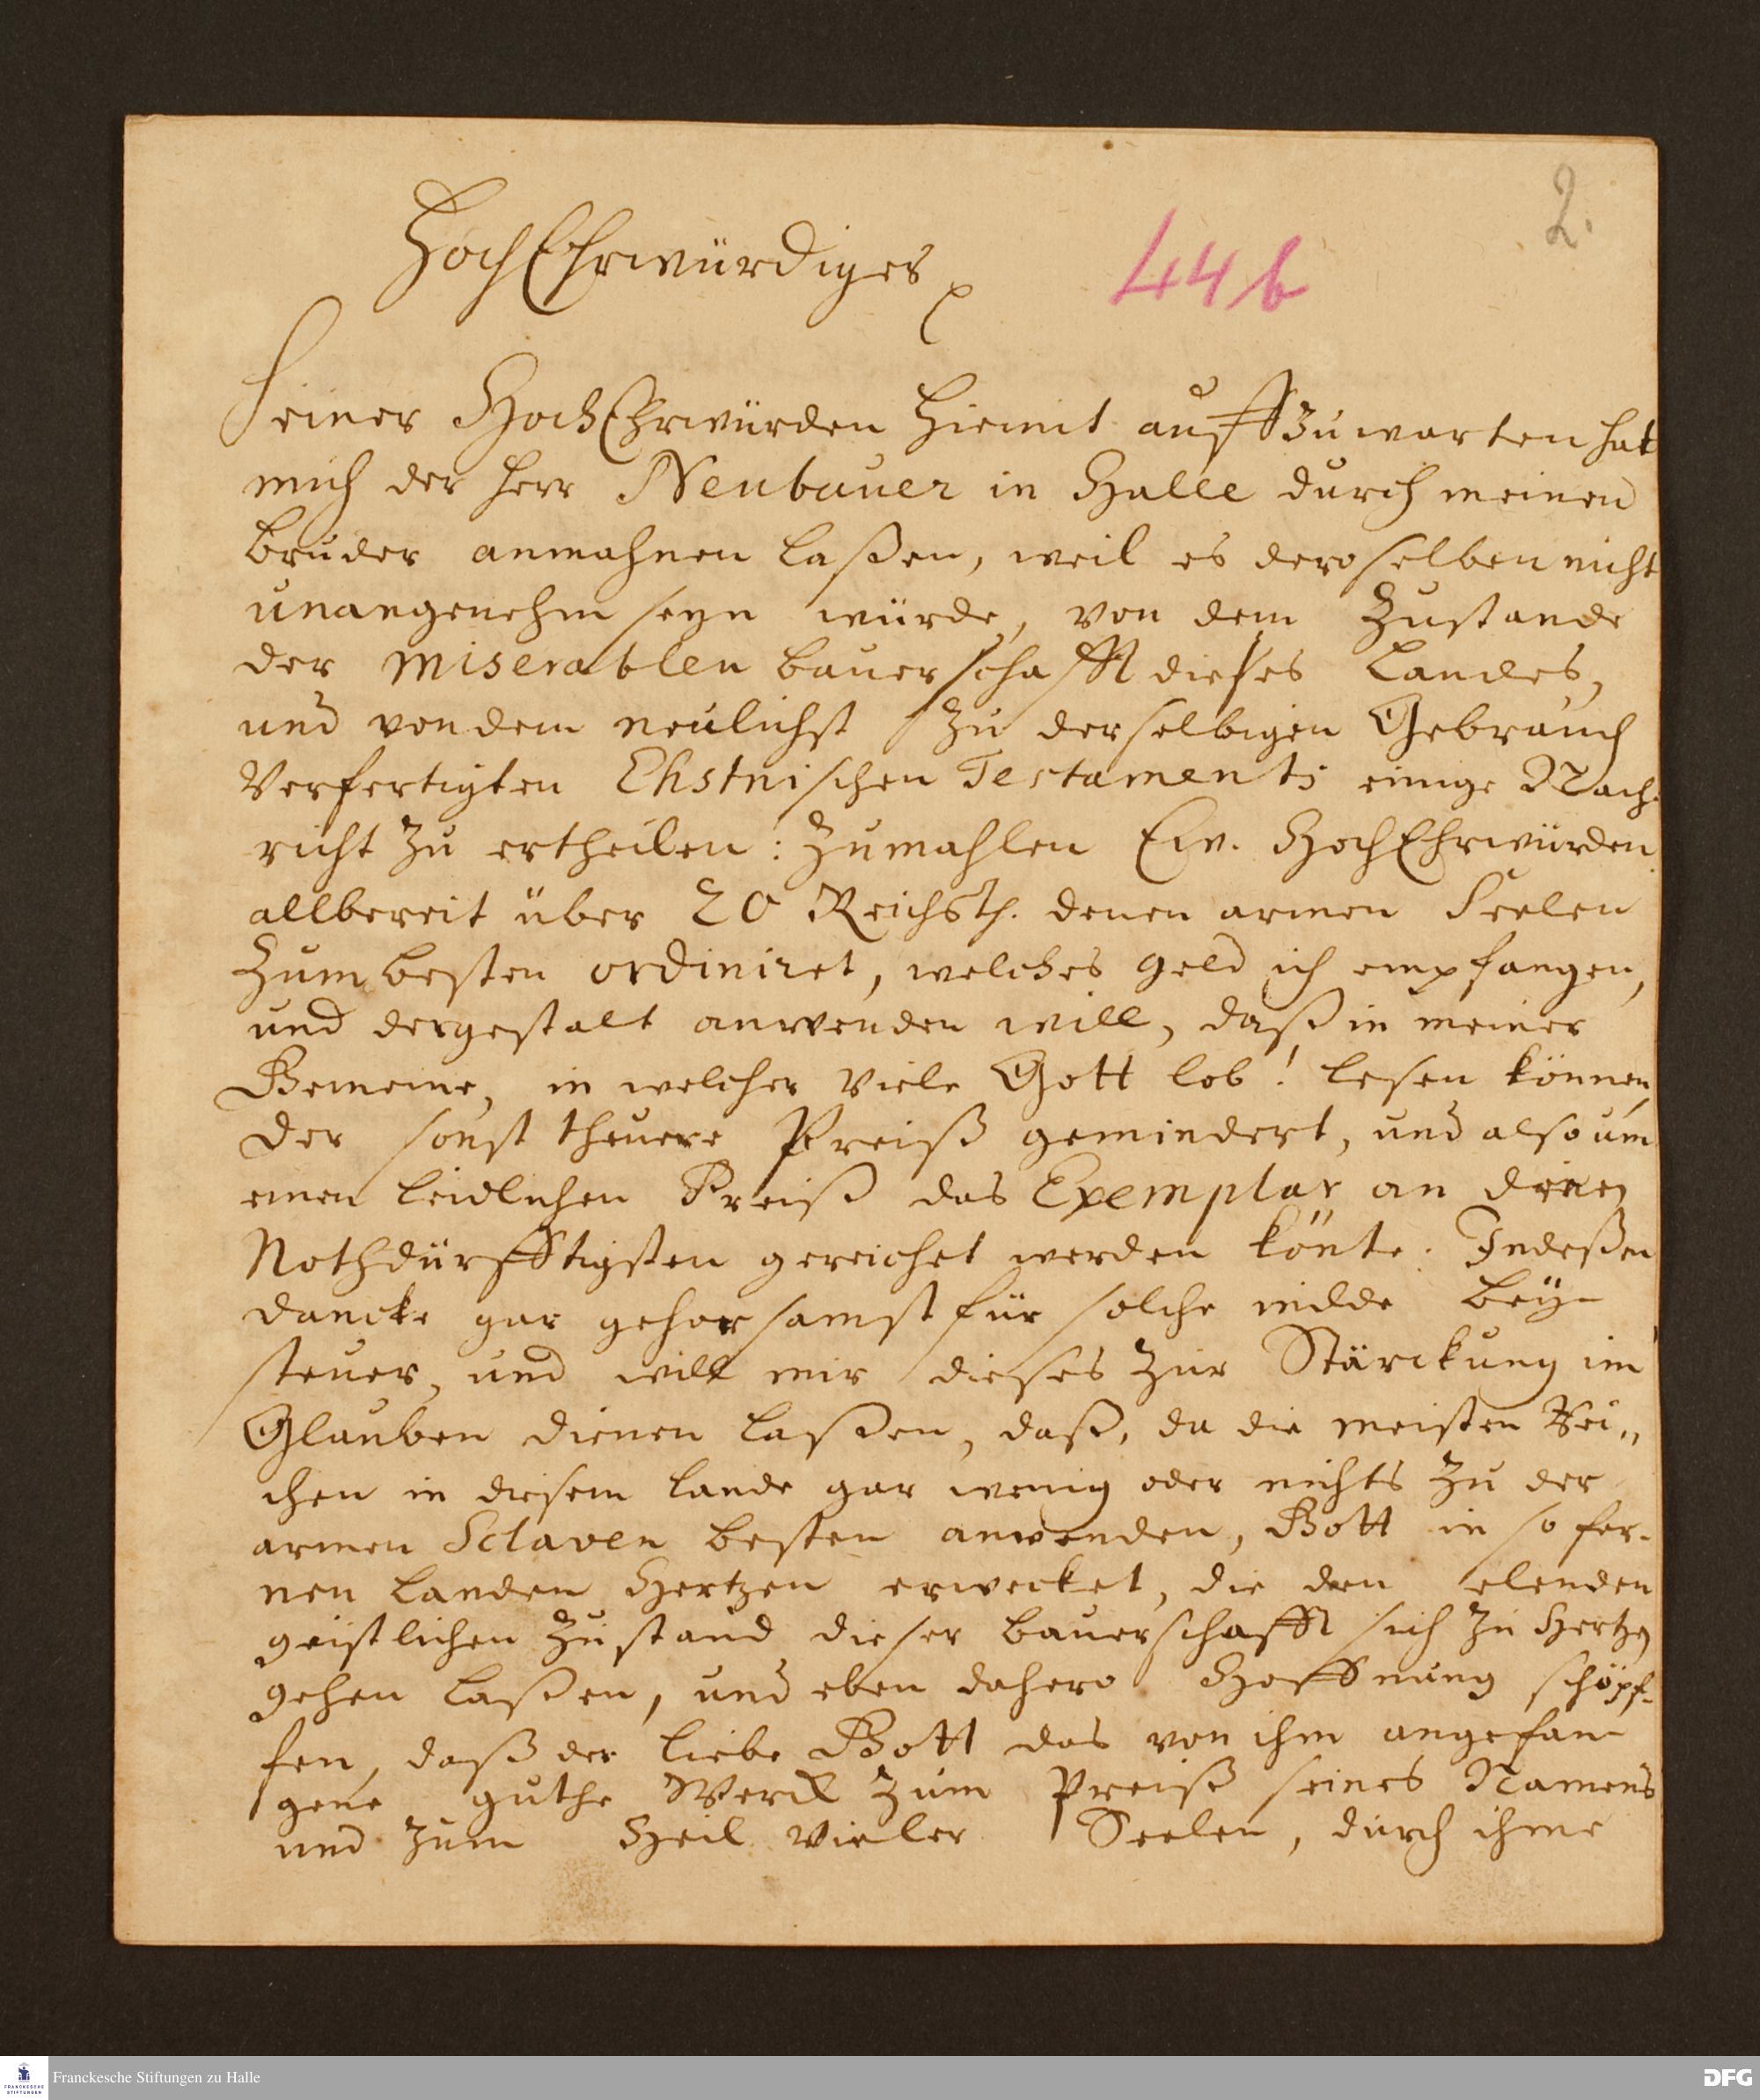 2.
HochEhrwürdiges
44b
Seiner HochEhrwürden hiemit auffzuwarten hat
mich der Herr Neubauer in Halle durch meinen
Bruder anmahnen laßen, weil es deroselben nicht
unangenehm seyn würde, von dem Zustande
der miserablen Bauerschafft dieses Landes,
und von dem neulichst zu derselbigen Gebrauch
Verfertigten Ehstnischen Testamente einige Nach-
richt zu ertheilen: Zumahlen Ew. HochEhrwürden
allbereit über 20 Reichsth. denen armen Seelen
Zum besten ordiniret, welches Geld ich empfangen,
und dergestalt anwenden will, daß in meiner
Gemeine, in welcher Viele Gott lob! lesen können,
der sonst theuere Preiß gemindert, und also um
einen leidlichen Preiß das Exemplar an die
Nothdürfftigsten gereichet werden könte. Indeßen
dancke gar gehorsamst für solche milde Bey-
steuer, und will mir dieses zur Stärckung im
Glauben dienen laßen, daß, da die meisten Rei„
chen in diesem Lande gar wenig oder nichts zu der
armen Sclaven besten anwenden, Gott in so fer-
nen Landen Hertzen erwecket, die den elenden
geistlichen Zustand dieser Bauerschafft sich zu Hertzen
gehen laßen, und eben dahero Hoffnung schöpf-
fen, daß der liebe Gott das von ihm angefan-
gene guthe Werck zum Preiß seines Namens
und zum Heil Vieler Seelen, durch ihme
Franckesche Stiftungen zu Halle
FRANCKESCHE
STIFTUNGEN
DFG